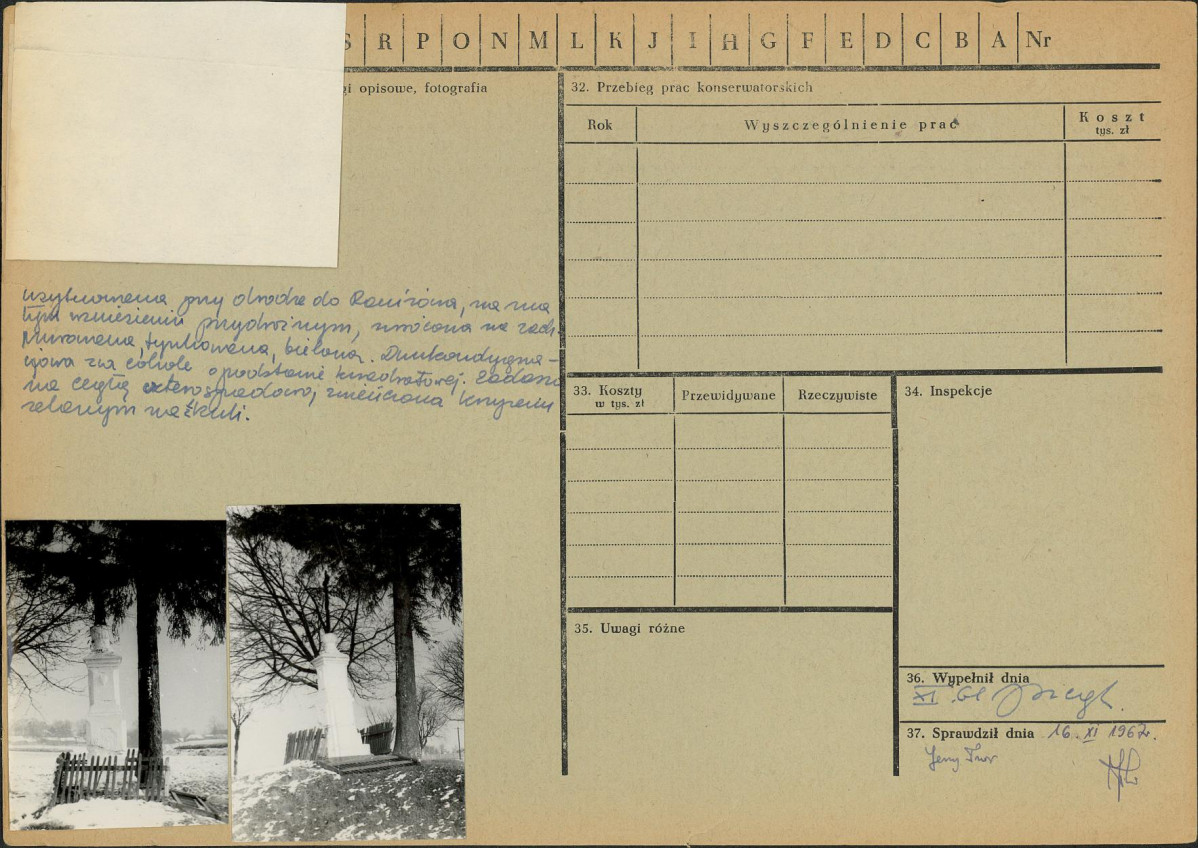 S R P O N M L K J I H G F E D C B A Nr
gi opisowe, fotografia
usytuowana przy drodze do Raniżowa, na ma
łym wzniesieniu przydrożnym, zwrócona na zach.
Murowana, tynkowana, bielona. Dwukondygna-
cyjowa na cokole o podstawie kwadratowej. Zadasz
na cegłą czterospadowo, zwieńczona krzyżem
żelaznym na kuli.
32. Przebieg prac konserwatorskich
Rok
Wyszczególnienie prac
Koszt
tys. zł
33. Koszty
w tys. zł
Przewidywane
Rzeczywiste
34. Inspekcje
35. Uwagi różne
36. Wypełnił dnia
XI
37. Sprawdził dnia 16. XI 1967r.
Jerzy Tur